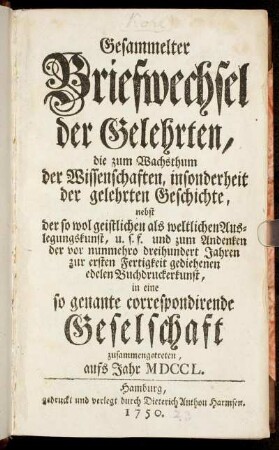 Gesammelter
Briefwechsel
der Gelehrten,
die zum Wachsthum
der Wissenschaften, insonderheit
der gelehrten Geschichte,
nebst
der so wol geistlichen als weltlichen Aus-
legungskunst, u. s. f. und zum Andenken
der vor nunmehro dreihundert Jahren
zur ersten Fertigkeit gediehenen
edelen Buchdruckerkunst,
in eine
so genante correspondirende
Geselschaft
zusammengetreten,
aufs Jahr MDCCL.
Hamburg,
gedruckt und verlegt durch Dieterich Anthon Harmsen.
1750.